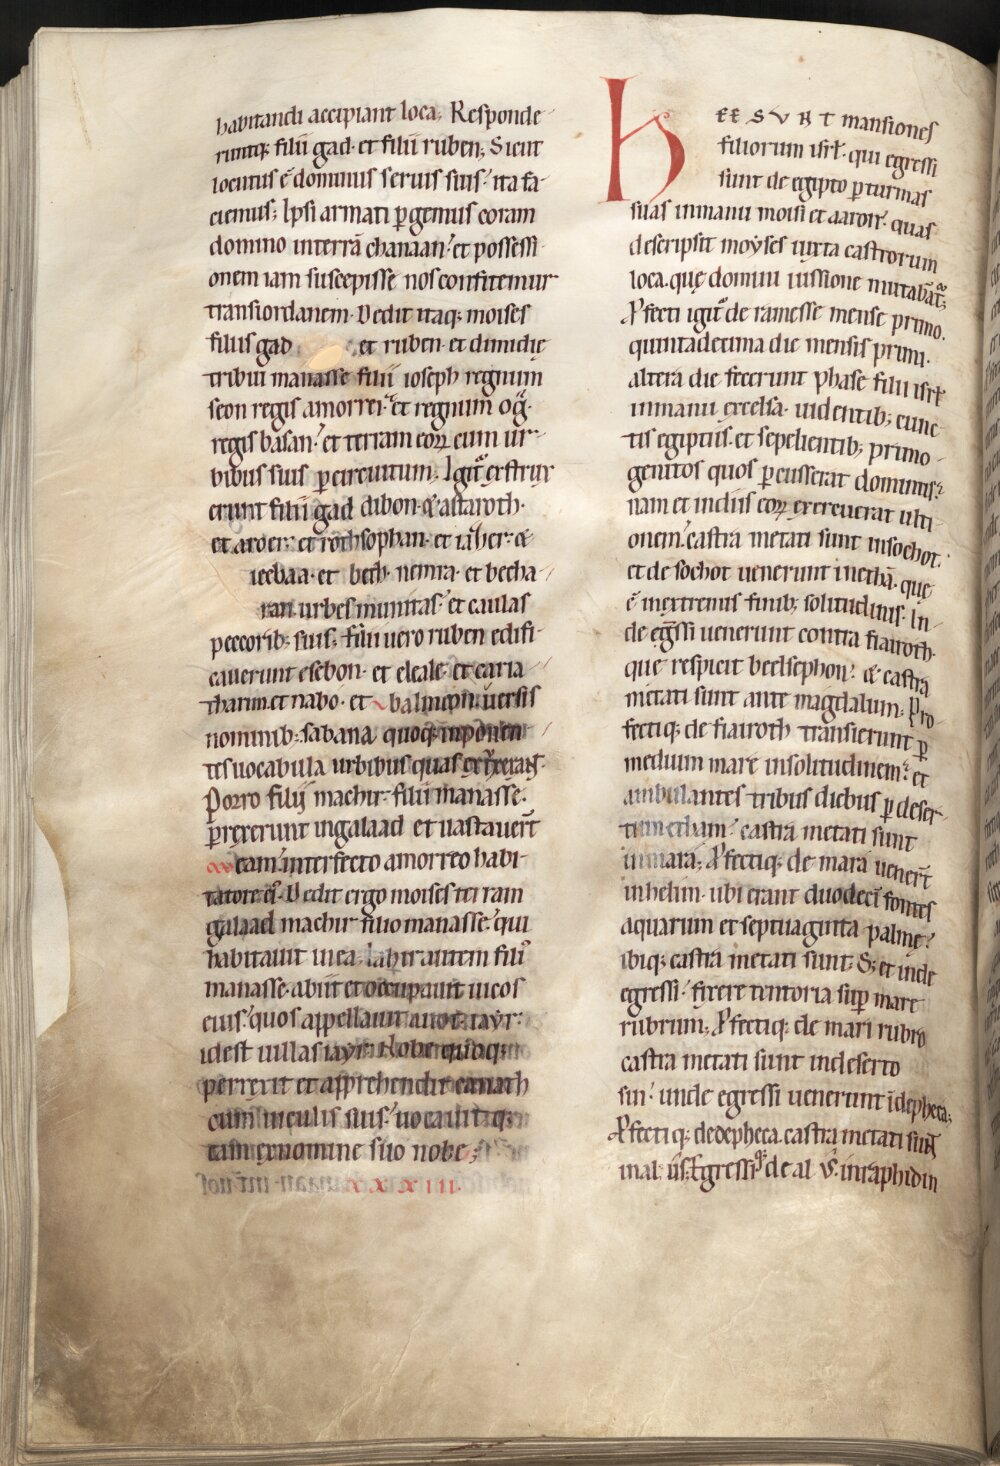 habitandi accipiant loca; Responde-
runtq; filii gad· et filii ruben; Sicut
locutus ē dominus seruis suis· ita fa-
ciemus; Ipsi armati ꝑgemus coram
domino interrā chanaan· et possessi-
onem iam suscepisse nos confitemur
transiordanem· Dedit itaq; moises
filiis gad et ruben· et dimidię
tribui manasse filii ioseph regnum
seon regis amorrei· et regnum og·
regis basan· et terram eoꝝ cum ur-
bibus suis ꝑ circuitum; Igit᷑ exstrux
erunt filii gad dibon· & astaroth·
et aroer· et rothsophan· et iazher· &
iecbaa· et beth· nemra· et betha-
ran· urbes munitas· et caulas
pecorib; suis; filii uero ruben edifi-
cauerunt esebon· et eleale· et caria-
tharim· et nabo· et balmeon· uersis
nominib; sabana quoq; inponen-
tes uocabula urbibus quas
Porro filii machir· filii manasse·
ꝑrexerunt ingalaad et uastauer̄t
eam· interfecto amorreo habi-
tatore ei᷒· Dedit ergo moises terram
galaad machir filio manasse· qui
habitauit in ea· Iahir autem fili᷒
manasse· abiit et occupauit uicos
eius· quos appellauit auot· iayr·
idest uillas iayr· Nobe quoq;
perrexit et apprehendit canath
cum uiculis suis· uocauitq;
eam exnomine suo nobe;
XXXIII.
HEE SUNT mansiones
filiorum isrl̄· qui egressi
sunt de egipto ꝑ turmas
suas inmanu moisi et aaron· quas
descripsit moyses iuxta castrorum
loca· quę domini iussione mutabant᷑;
Ꝓfecti igit᷑ de ramesse mense primo·
quintadecima die mensis primi·
altera die fecerunt phase filii isrl̄
inmanu excelsa· uidentib; cunc-
tis egiptiis· et sepelientib; primo-
genitos quos ꝑcusserat dominus·
nam et indiis eoꝝ exercuerat ulti-
onem· castra metati sunt insochot·
et de sochot uenerunt inethā· que
ē inextremis finib; solitudinis· In-
de egr̄ssi uenerunt contra fiairoth·
que respicit beelsephon· & castra
metati sunt ante magdalum; Pro-
fectiq; de fiairoth transierunt ꝑ
medium mare insolitudinem· et
ambulantes tribus diebus ꝑ deser-
tum etham· castra metati sunt
inmara; Ꝓfectiq; de mara uener̄t
inhelim· ubi erant duodecī fontes
aquarum et septuaginta palme·
ibiq; castra metati sunt· S; et inde
egressi· fixere tentoria sup̄ mare
rubrum; Ꝓfectiq; de mari rubro
castra metati sunt indeserto
sin· unde egressi uenerunt īdepheca;
Ꝓfectiq; dedepheca· castra metati sunt
inal· Egressiq; de al inraphidin